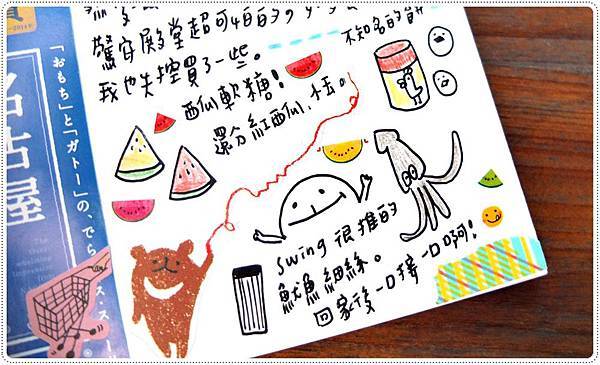 驚安殿堂超可怕的
我也失控買了一些。
不知名的餅
西瓜軟糖!
還分紅西瓜、小玉。
swing 很推的
魷魚細絲。
回家後一口接一口啊!
「おもち」と「ガトー」の、でら
古屋